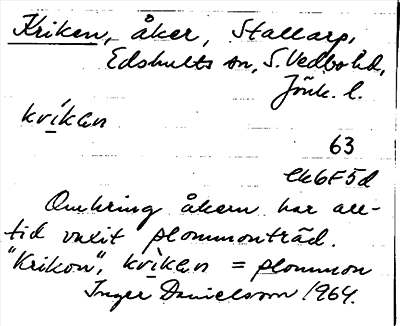 Kriken, åker, Stallarp,
Edshults sn, S. Vedbo hd,
Jönk. l.
kvíkan
63
Ek6F5d
Omkring åkern har all-
tid vuxit plommonträd.
"Krikon", kvìkan = plommon
Inger Danielsson 1964.